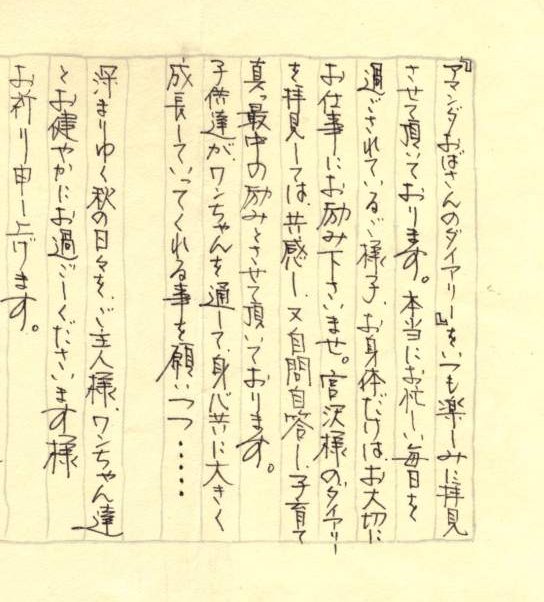 『アマンダおばさんのダイアリー』をいつも楽しみに拝見
させて頂いております。本当にお忙しい毎日を
過ごされているご様子、お身体だけは、お大切に
お仕事にお励み下さいませ。宮沢様のダイアリー
を拝見しては、共感し、又自問自答し、子育て
真っ最中の励みとさせて頂いております。
子供達が、ワンちゃんを通して、身心共に大きく
成長していってくれる事を願いつつ・・・・・
深まりゆく秋の日々を、ご主人様、ワンちゃん達
とお健やかにお過ごしくださいます様
お祈り申し上げます。